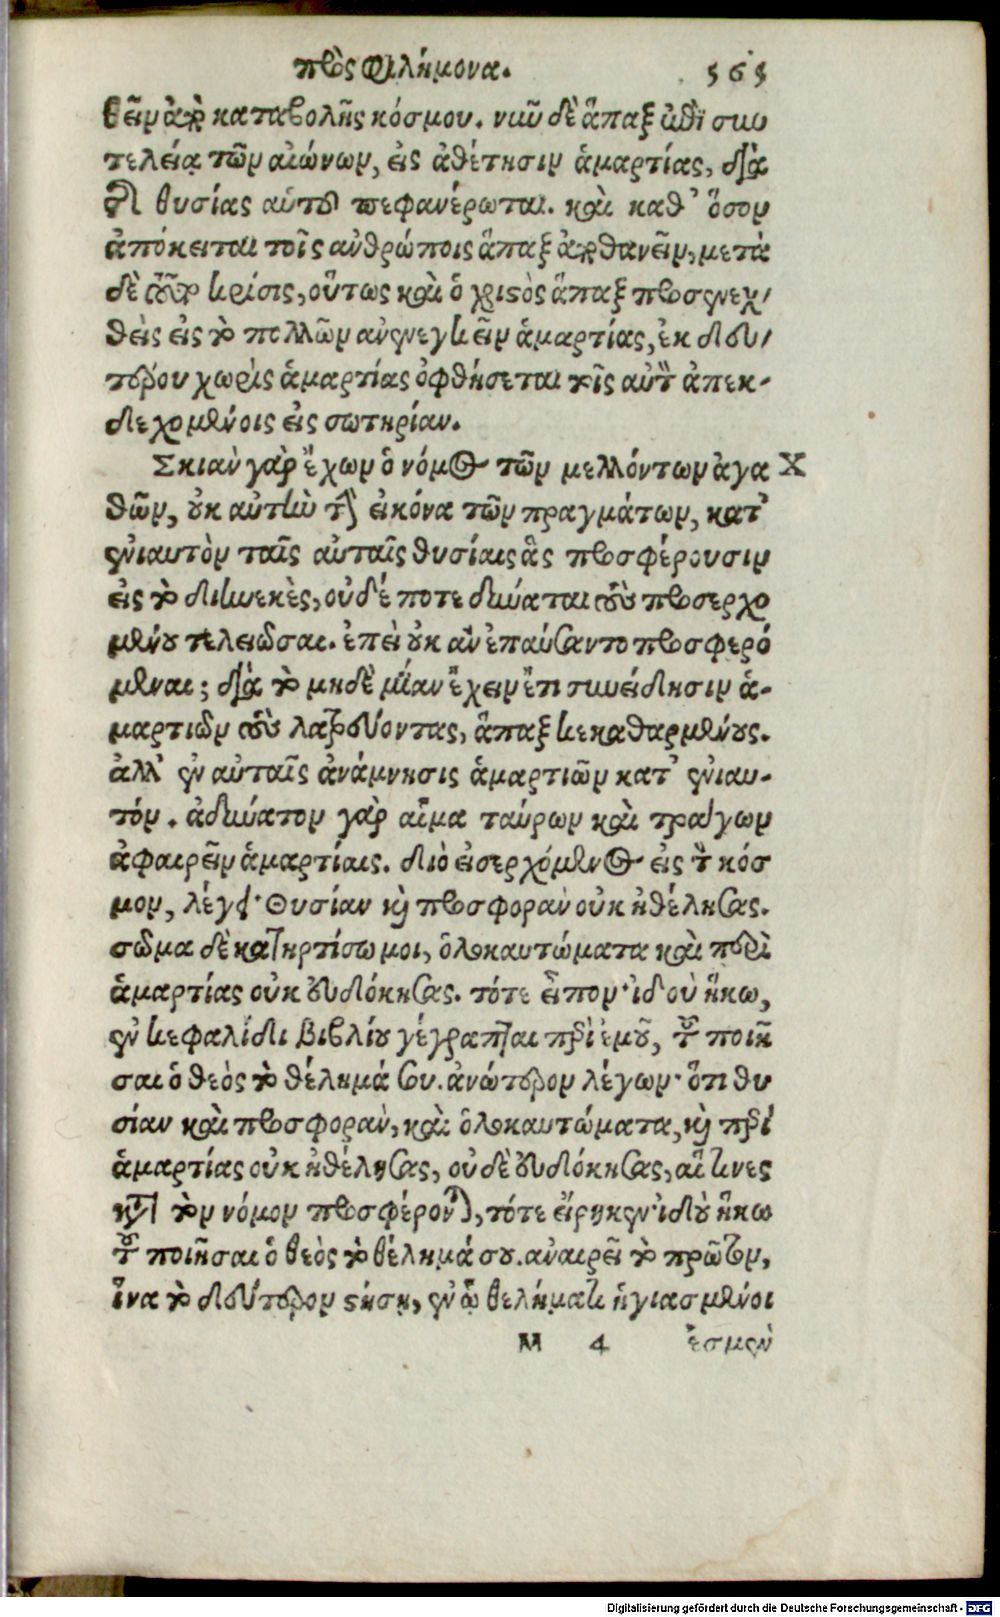 πρὸς Φιλήμονα. 565
θεῖν ἀπὸ καταβολῆς κόσμου. νῦν δὲ ἅπαξ ἐπὶ συν
τελείᾳ τῶν αἰώνων, εἰς ἀθέτησιν ἁμαρτίας, διὰ
τῆς θυσίας αὑτοῦ πεφανέρωται. καὶ καθ' ὅσον
ἀπόκειται τοῖς ἀνθρώποις ἅπαξ ἀποθανεῖν, μετὰ
δὲ τοῦτο κρίσις, οὕτως καὶ ὁ χριστὸς ἅπαξ προσενεχ/
θεὶς εἰς τὸ πολλῶν ἀνενεγκεῖν ἁμαρτίας, ἐκ δευ/
τέρου χωρὶς ἁμαρτίας ὀφθήσεται τοῖς αὐτὸν ἀπεκ-
δεχομένοις εἰς σωτηρίαν.
Σκιὰν γὰρ ἔχων ὁ νόμος τῶν μελλόντων ἀγα X
θῶν, οὐκ αὐτὴν τὴν εἰκόνα τῶν πραγμάτων, κατ'
ἐνιαυτὸν ταῖς αὐταῖς θυσίαις ἃς προσφέρουσιν
εἰς τὸ διηνεκὲς, οὐδέποτε δύναται τοὺς προσερχο
μένους τελειῶσαι. ἐπεὶ οὐκ ἂν ἐπαύσαντο προσφερό
μεναι; διὰ τὸ μηδὲ μίαν ἔχειν ἔτι συνείδησιν ἁ-
μαρτιῶν τοὺς λατρεύοντας, ἅπαξ κεκαθαρμένους.
ἀλλ' ἐν αὐταῖς ἀνάμνησις ἁμαρτιῶν κατ' ἐνιαυ-
τόν. ἀδύνατον γὰρ αἷμα ταύρων καὶ τράγων
ἀφαιρεῖν ἁμαρτίαις. διὸ εἰσερχόμενος εἰς τὸν κόσ
μον, λέγει· Θυσίαν καὶ προσφορὰν οὐκ ἠθέλησας.
σῶμα δὲ κατηρτίσω μοι, ὁλοκαυτώματα καὶ περὶ
ἁμαρτίας οὐκ εὐδόκησας. τότε εἶπον· ἰδοὺ ἥκω,
ἐν κεφαλίδι βιβλίου γέγραπται περὶ ἐμοῦ, τοῦ ποιῆ
σαι ὁ θεὸς τὸ θέλημά σου. ἀνώτερον λέγων· ὅτι θυ
σίαν καὶ προσφορὰν, καὶ ὁλοκαυτώματα, καὶ περὶ
ἁμαρτίας οὐκ ἠθέλησας, οὐδὲ εὐδόκησας, αἵτινες
κατὰ τὸν νόμον προσφέρονται, τότε εἴρηκεν· ἰδοὺ ἥκω
τοῦ ποιῆσαι ὁ θεὸς τὸ θέλημά σου. ἀναιρεῖ τὸ πρῶτον,
ἵνα τὸ δεύτερον στήσῃ, ἐν ᾧ θελήματι ἡγιασμένοι
M 4 ἐσμὲν
Digitalisierung gefördert durch die Deutsche Forschungsgemeinschaft - DFG